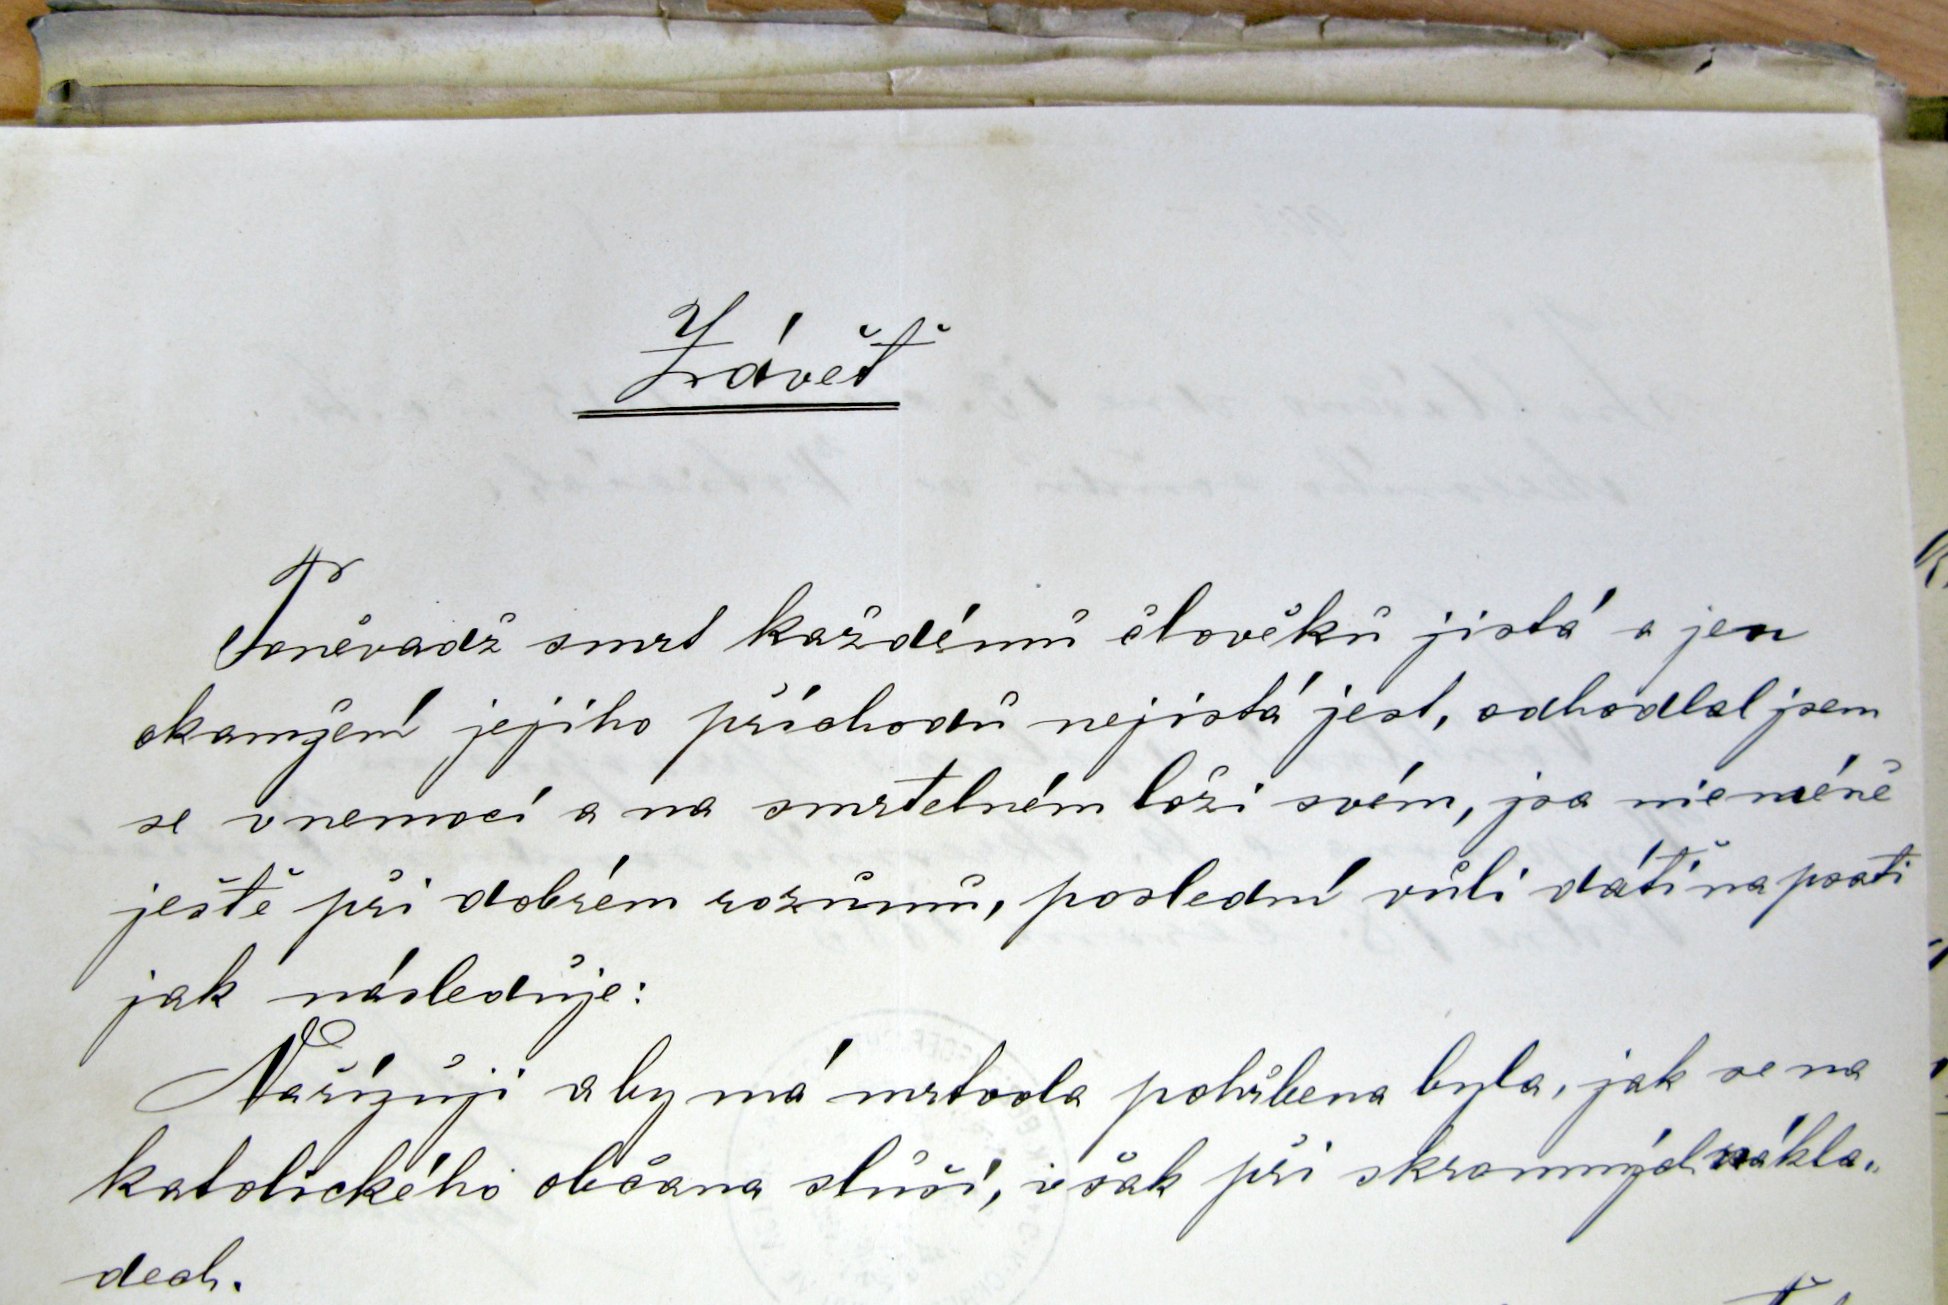 Závěť
Poněvadž smrt každému člověku jistá a jen
okamžení jejího příchodu nejistá jest, odhodlal jsem
se v nemoci a na smrtelném loži svém, jsa nicméně
ještě při dobrém rozumu, poslední vůli dáti napsati
jak následuje:
Nařizuji aby má mrtvola pohřbena byla, jak se na
katolického občana sluší, však při skromných nákla„
dech.